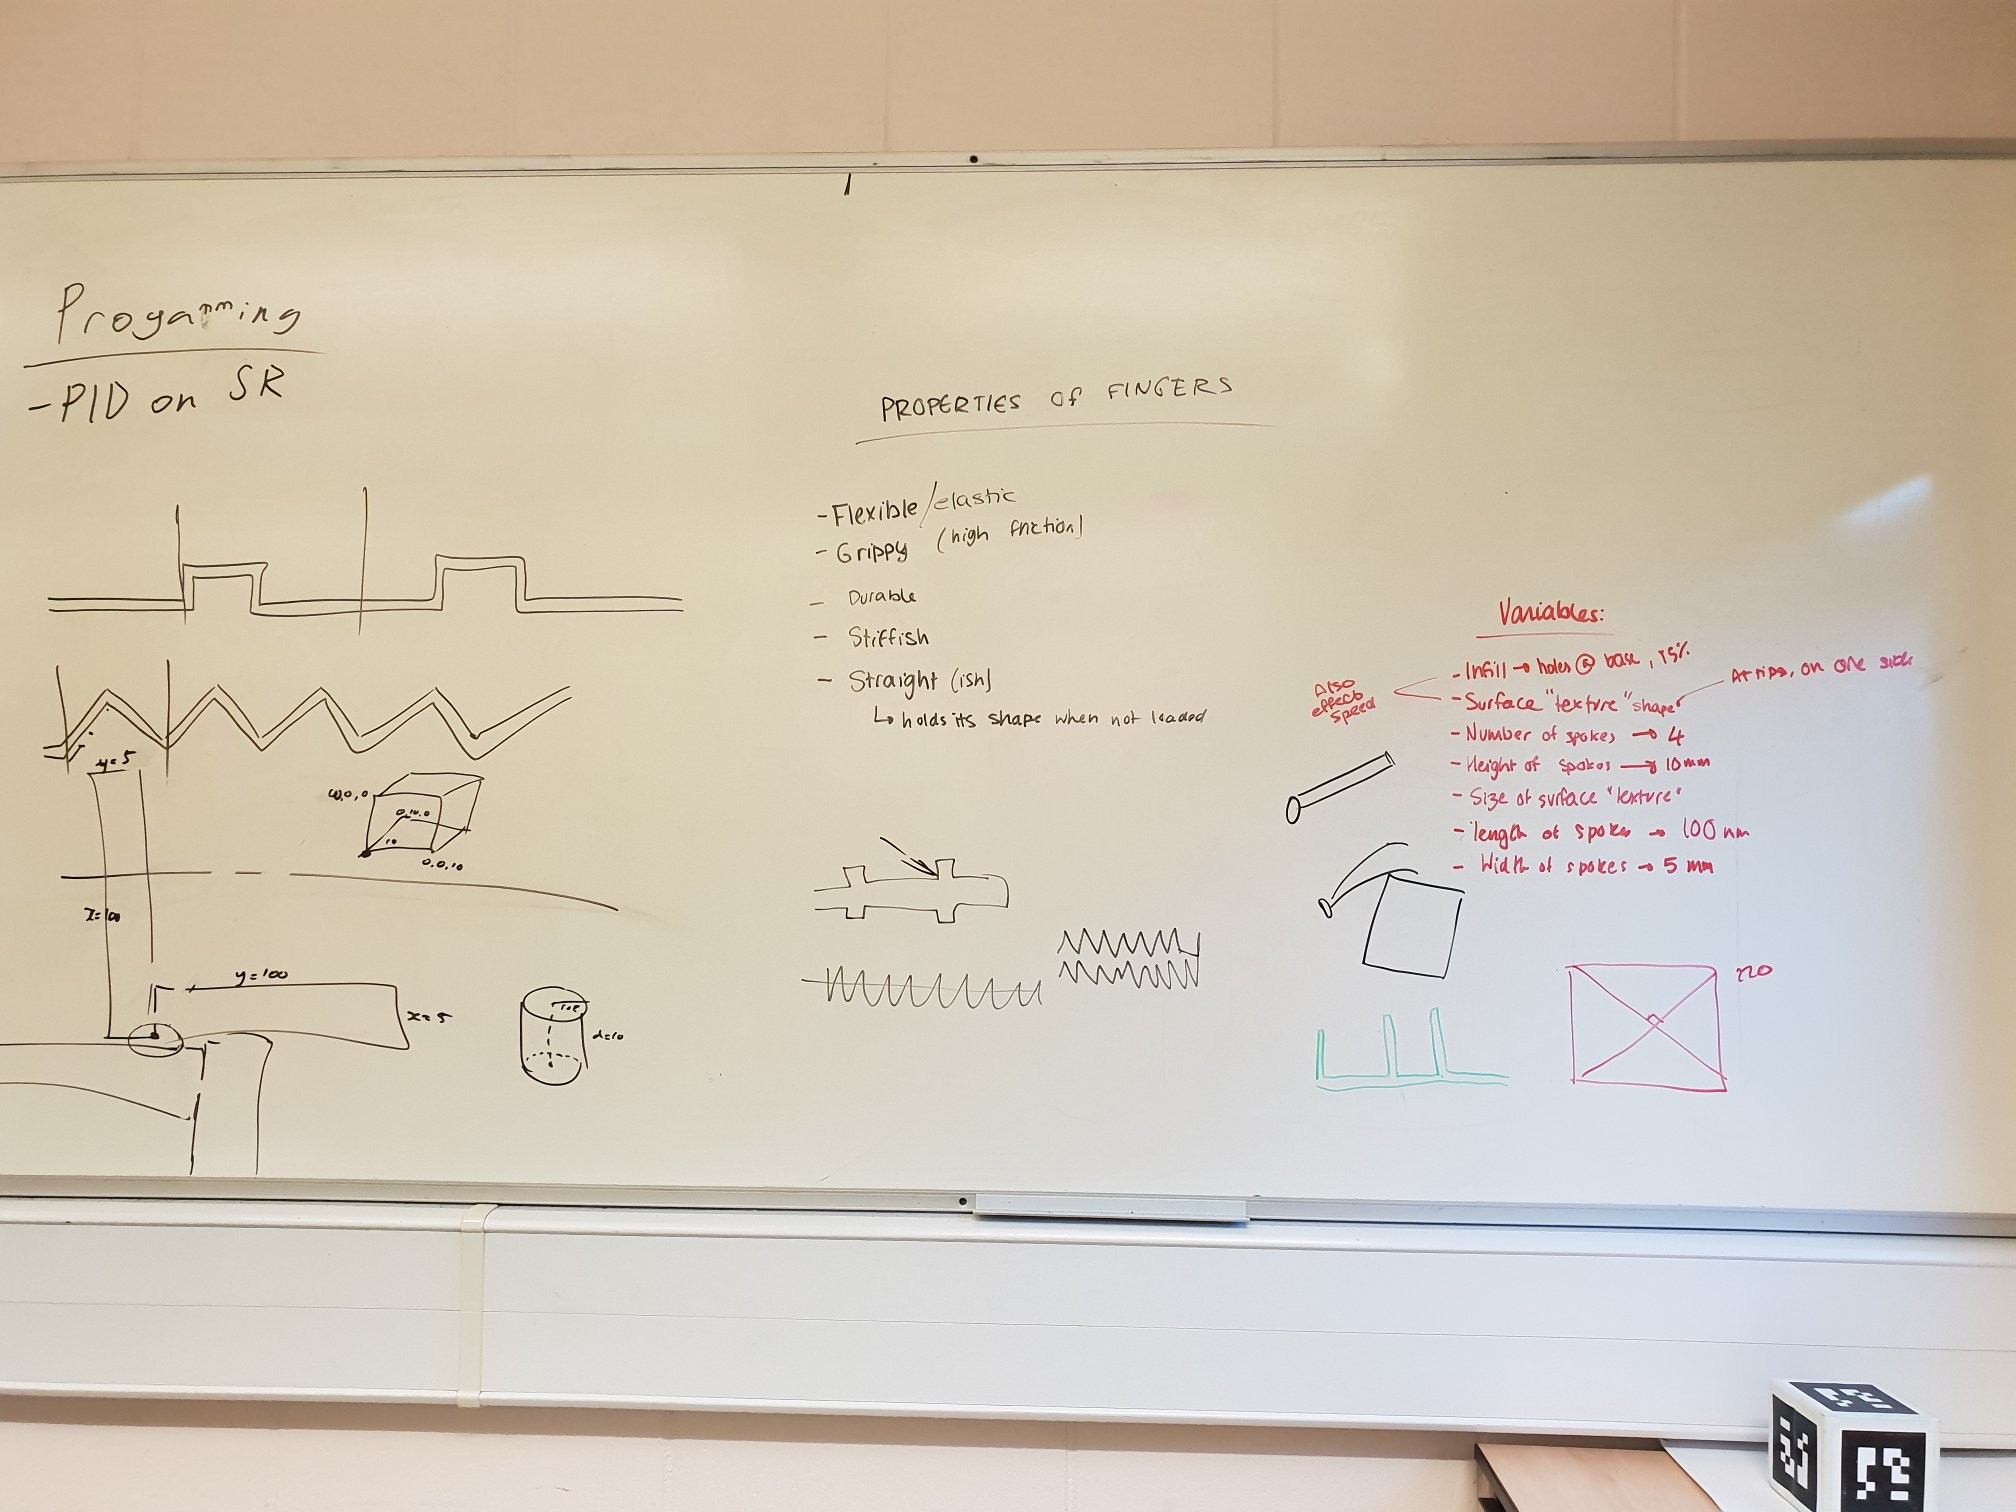 Progamming
-PID on SR
y=5
0,10,0
10
0,0,10
x=100
y=100
x=5
d=10
PROPERTIES OF FINGERS
-Flexible/elastic
- Grippy (high friction)
- Durable
- Stiffish
- Straight (ish)
↳ holds its shape when not loaded
Variables:
- Infill → holes @ base, 15%
- Surface "texture" shape
At tips, on one side
Also effects speed
- Number of spokes → 4
- Height of spokes → 10mm
- Size of surface "texture"
- length of spokes → 100 mm
- Width of spokes → 5 mm